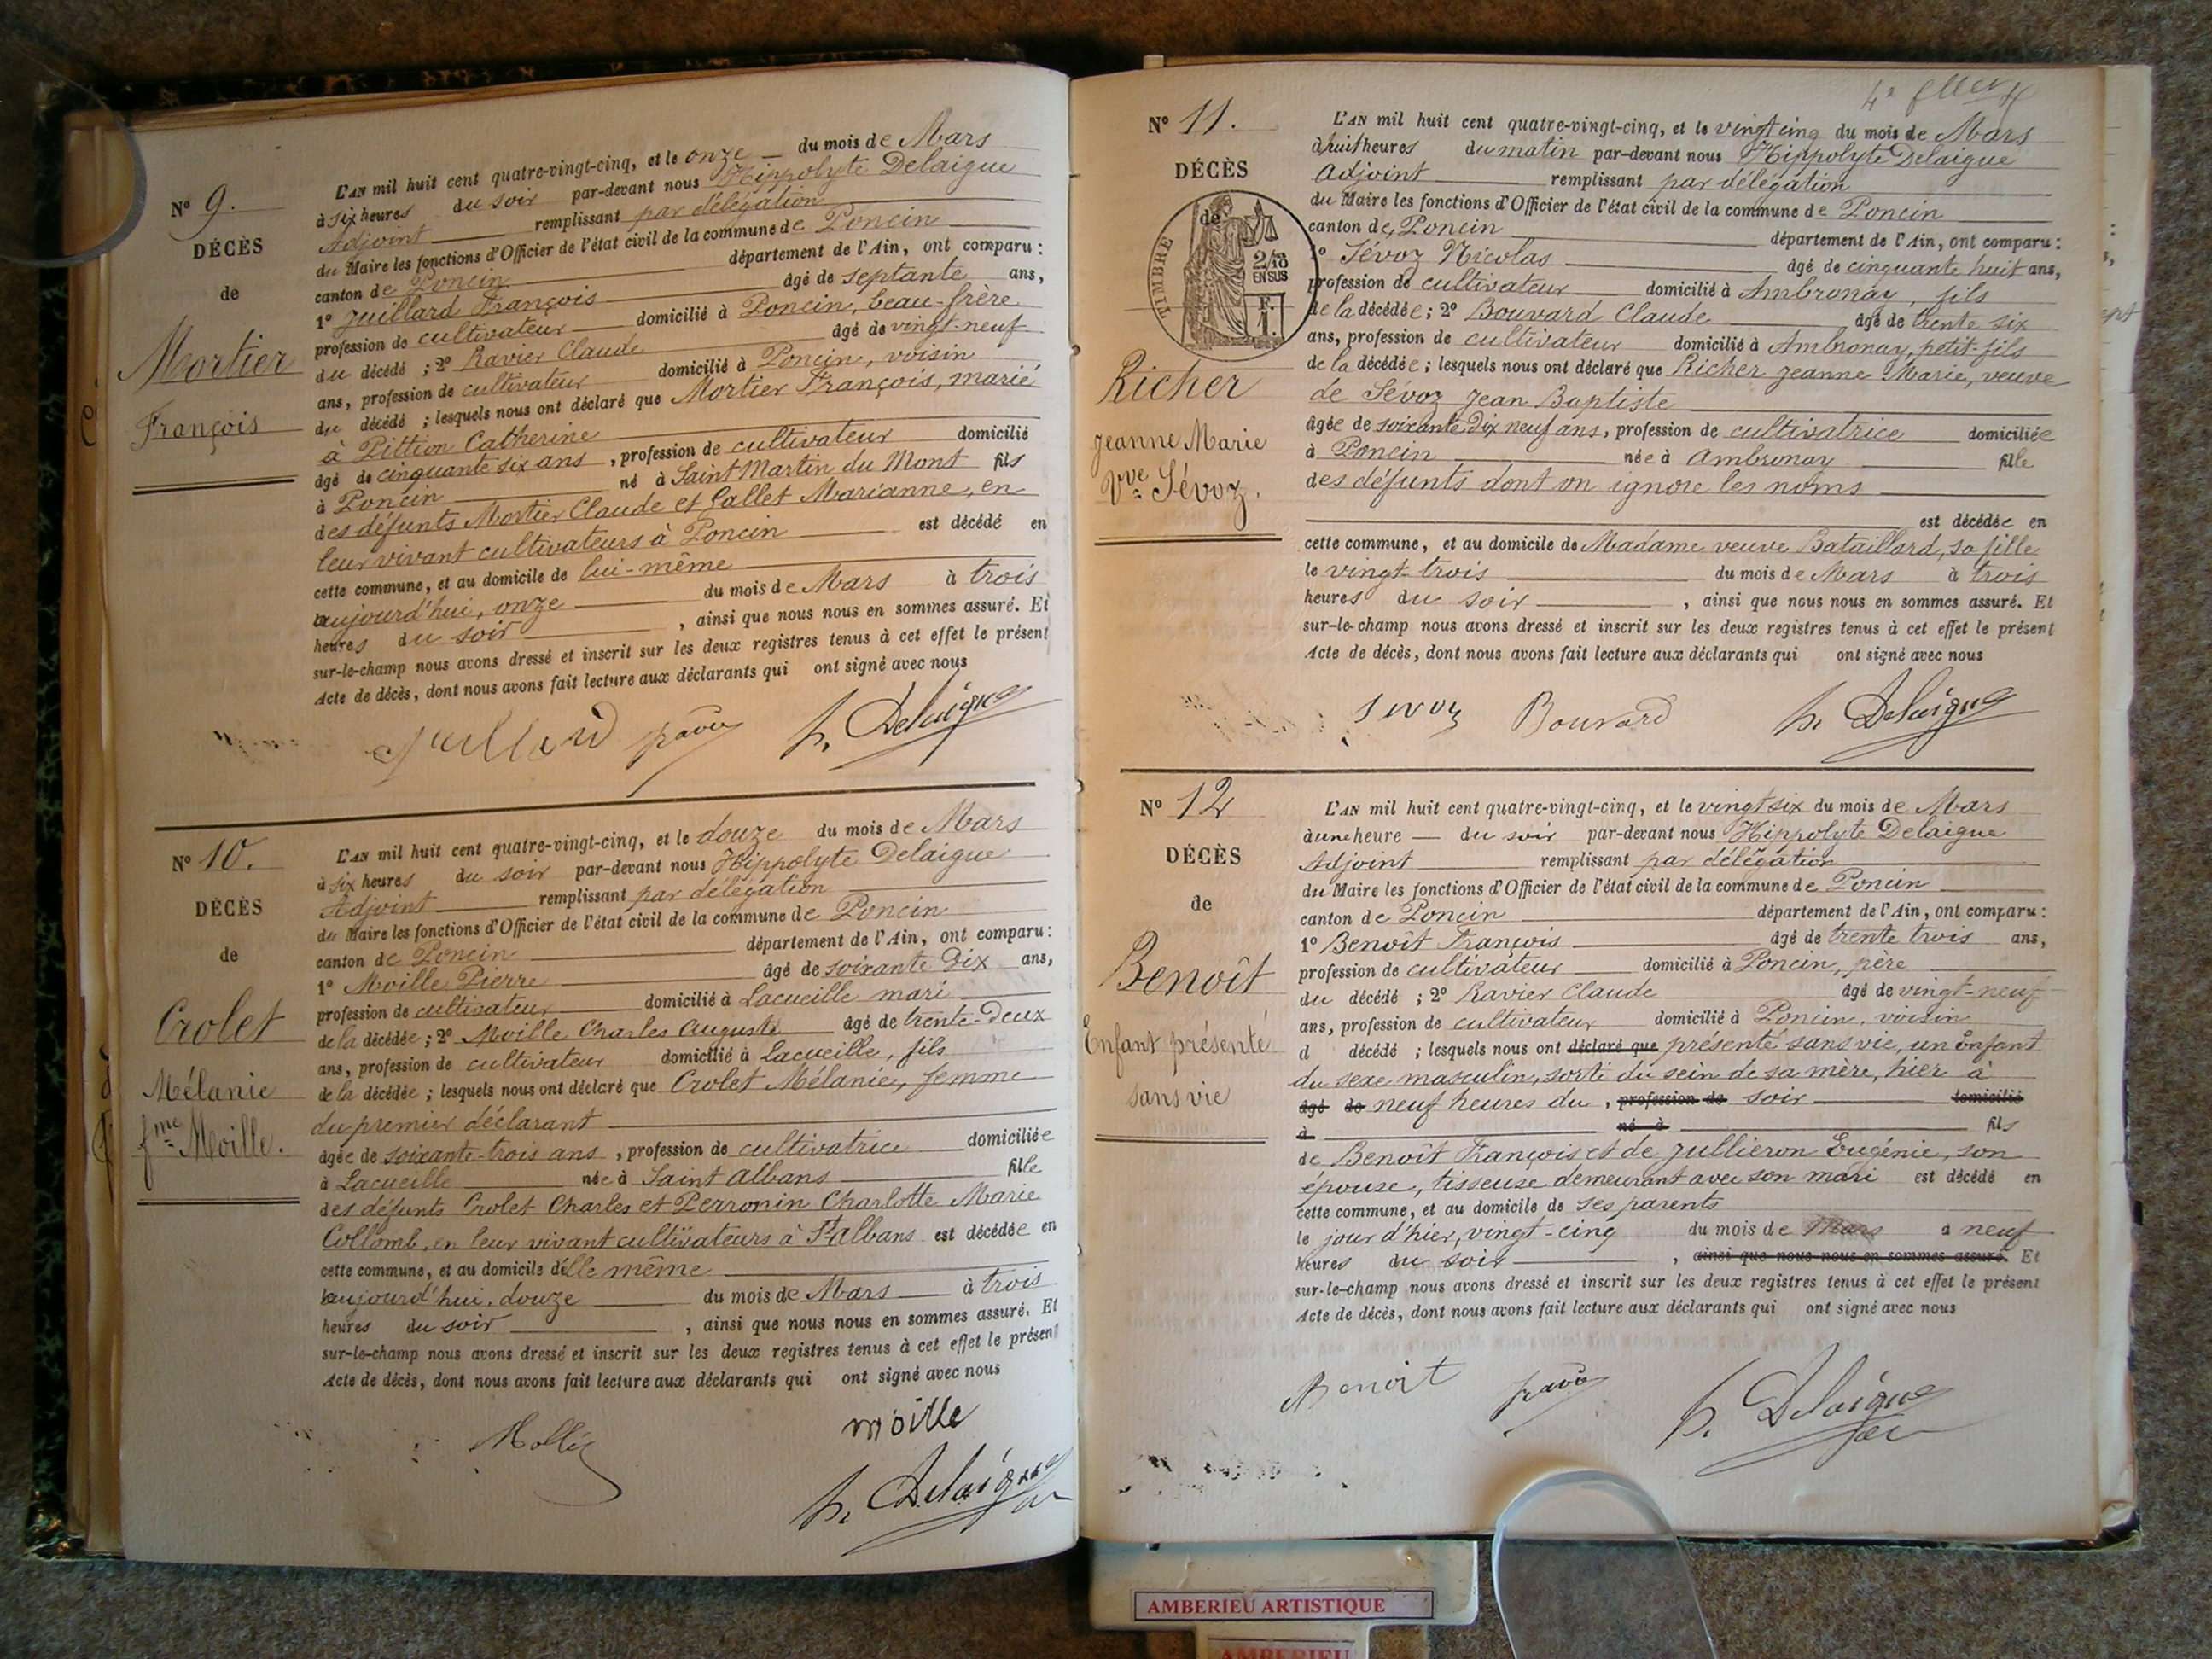 Nº 9.
DÉCÈS
de
Mortier
François
L'AN mil huit cent quatre-vingt-cinq, et le onze du mois de Mars
à six heures du soir par-devant nous Hippolyte Delaigue
Adjoint remplissant par délégation
du Maire les fonctions d'Officier de l'état civil de la commune de Poncin
canton de Poncin département de l'Ain, ont comparu :
1º Juillard François âgé de septante ans,
profession de cultivateur domicilié à Poncin, beau-frère
du décédé ; 2º Ravier Claude âgé de vingt-neuf
ans, profession de cultivateur domicilié à Poncin, voisin
du décédé ; lesquels nous ont déclaré que Mortier François, marié
à Pittion Catherine
âgé de cinquante six ans, profession de cultivateur domicilié
à Poncin né à Saint Martin du Mont fils
des défunts Mortier Claude et Gallet Marianne, en
leur vivant cultivateurs à Poncin est décédé en
cette commune, et au domicile de lui-même
aujourd'hui, onze du mois de Mars à trois
heures du soir, ainsi que nous nous en sommes assuré. Et
sur-le-champ nous avons dressé et inscrit sur les deux registres tenus à cet effet le présent
Acte de décès, dont nous avons fait lecture aux déclarants qui ont signé avec nous
Juillard Ravier h. Delaigue
Nº 10.
DÉCÈS
de
Crolet
Mélanie
fme Moille.
L'AN mil huit cent quatre-vingt-cinq, et le douze du mois de Mars
à six heures du soir par-devant nous Hippolyte Delaigue
Adjoint remplissant par délégation
du Maire les fonctions d'Officier de l'état civil de la commune de Poncin
canton de Poncin département de l'Ain, ont comparu :
1º Moille Pierre âgé de soixante Dix ans,
profession de cultivateur domicilié à Lacueille mari
de la décédée ; 2º Moille Charles Auguste âgé de trente-deux
ans, profession de cultivateur domicilié à Lacueille, fils
de la décédée ; lesquels nous ont déclaré que Crolet Mélanie, femme
du premier déclarant
âgée de soixante-trois ans, profession de cultivatrice domiciliée
à Lacueille née à Saint Albans fille
des défunts Crolet Charles et Perronin Charlotte Marie
Collomb, en leur vivant cultivateurs à St Albans est décédée en
cette commune, et au domicile d'elle même
aujourd'hui, douze du mois de Mars à trois
heures du soir, ainsi que nous nous en sommes assuré. Et
sur-le-champ nous avons dressé et inscrit sur les deux registres tenus à cet effet le présent
Acte de décès, dont nous avons fait lecture aux déclarants qui ont signé avec nous
moille
h. Delaigue
Nº 11.
DÉCÈS
de
TIMBRE
2/10
EN SUS
F.
1.
Richer
Jeanne Marie
Vve Sévoz.
L'AN mil huit cent quatre-vingt-cinq, et le vingt cinq du mois de Mars
à huit heures du matin par-devant nous Hippolyte Delaigue
Adjoint remplissant par délégation
du Maire les fonctions d'Officier de l'état civil de la commune de Poncin
canton de Poncin département de l'Ain, ont comparu :
1º Sévoz Nicolas âgé de cinquante huit ans,
profession de cultivateur domicilié à Ambronay, fils
de la décédée ; 2º Bouvard Claude âgé de trente six
ans, profession de cultivateur domicilié à Ambronay, petit-fils
de la décédée ; lesquels nous ont déclaré que Richer Jeanne Marie, veuve
de Sévoz Jean Baptiste
âgée de soixante Dix neuf ans, profession de cultivatrice domiciliée
à Poncin née à Ambronay fille
des défunts dont on ignore les noms
est décédée en
cette commune, et au domicile de Madame veuve Bataillard, sa fille
le vingt-trois du mois de Mars à trois
heures du soir, ainsi que nous nous en sommes assuré. Et
sur-le-champ nous avons dressé et inscrit sur les deux registres tenus à cet effet le présent
Acte de décès, dont nous avons fait lecture aux déclarants qui ont signé avec nous
Sevoz Bouvard h. Delaigue
Nº 12
DÉCÈS
de
Benoît
Enfant présenté
sans vie
L'AN mil huit cent quatre-vingt-cinq, et le vingt six du mois de Mars
à une heure du soir par-devant nous Hippolyte Delaigue
Adjoint remplissant par délégation
du Maire les fonctions d'Officier de l'état civil de la commune de Poncin
canton de Poncin département de l'Ain, ont comparu :
1º Benoît François âgé de trente trois ans,
profession de cultivateur domicilié à Poncin, père
du décédé ; 2º Ravier Claude âgé de vingt-neuf
ans, profession de cultivateur domicilié à Poncin, voisin
d décédé ; lesquels nous ont déclaré que présenté sans vie, un Enfant
du sexe masculin, sorti du sein de sa mère, hier à
âgé de neuf heures du, profession de soir domicilié
à né à fils
de Benoît François et de Jullieron Eugénie, son
épouse, tisseuse demeurant avec son mari est décédé en
cette commune, et au domicile de ses parents
le jour d'hier, vingt-cinq du mois de Mars à neuf
heures du soir, ainsi que nous nous en sommes assuré. Et
sur-le-champ nous avons dressé et inscrit sur les deux registres tenus à cet effet le présent
Acte de décès, dont nous avons fait lecture aux déclarants qui ont signé avec nous
Benoit Ravier h. Delaigue
AMBERIEU ARTISTIQUE
AMBERIEU